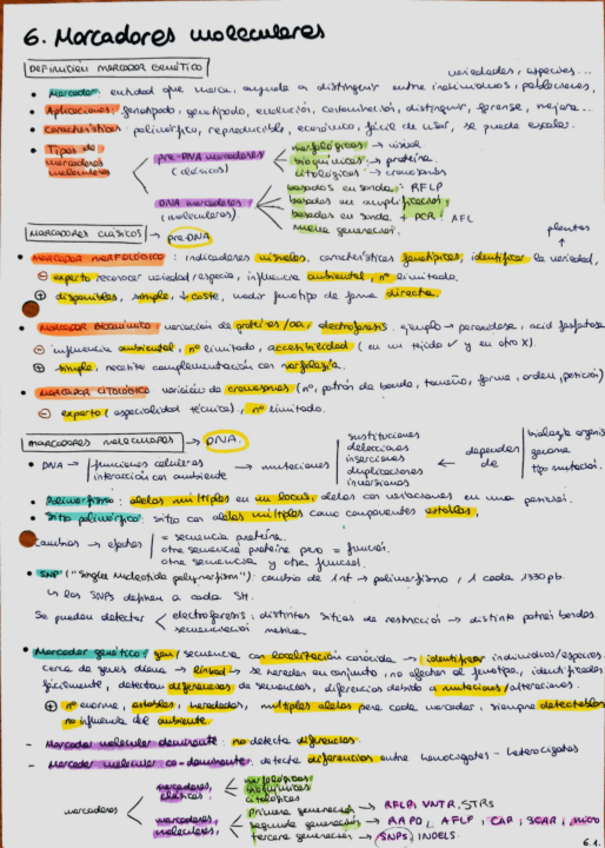 6. Marcadores moleculares
DEFINICIÓN MARCADOR GENÉTICO
variedades, especies...
• Marcador: entidad que marca, ayuda a distinguir entre individuos, poblaciones,
• Aplicaciones: fenotipado, genotipado, evolución, contaminación, distinguir, forense, mejora...
• Características: polimórfico, reproducible, económico, fácil de usar, se puede escalar.
• Tipos de marcadores moleculares
pre-DNA marcadores (clásicos)
morfológicos → visual
bioquímicos → proteína.
citológicos → cromosomas
DNA marcadores (moleculares).
basados en sonda: RFLP
basados en amplificación:
basados en sonda + PCR: AFL
nueva generación.
MARCADORES CLÁSICOS → pre-DNA
plantas
↑
• MARCADOR MORFOLÓGICO: indicadores visuales, características fenotípicas, identificar la variedad,
⊖ experto reconocer variedad/especie, influencia ambiental, nº limitado.
⊕ disponibles, simple, ↓ coste, medir fenotipo de forma directa.
• MARCADOR BIOQUÍMICO variación de proteínas/aa, electroforesis. ejemplo → peroxidasa, acid fosfatasa
⊖ influencia ambiental, nº limitado, accesibilidad (en un tejido ✓ y en otro X).
⊕ simple, necesita complementación con morfología.
• MARCADOR CITOLÓGICO variación de cromosomas (nº, patrón de banda, tamaño, forma, orden, posición)
⊖ experto (especialidad técnica), nº limitado.
MARCADORES MOLECULARES → DNA.
• DNA → funciones celulares
interacción con ambiente
→ mutaciones
sustituciones
delecciones
inserciones
duplicaciones
inversiones
← dependen de
biología organis
genoma
tipo mutación.
• Polimorfismo: alelos múltiples en un locus, alelos con variaciones en una posición.
• Sitio polimórfico: sitio con alelos múltiples como componentes estables,
Cambios → efectos
= secuencia proteína.
otra secuencia proteína pero = función.
otra secuencia y otra función.
• SNP ("Single Nucleotide polymorfism"): cambio de 1nt → polimorfismo, 1 cada 1330 pb.
↳ los SNPs definen a cada SH.
Se pueden detectar
electroforesis: distintos sitios de restricción → distinto patrón bandas.
secuenciación masiva.
• Marcador genético: gen/secuencia con localización conocida → identificar individuos/especies.
cerca de genes diana → linked → se heredan en conjunto, no afectan al fenotipo, identificados
fácilmente, detectan diferencias de secuencias, diferencias debido a mutaciones/alteraciones.
⊕ nº enorme, estables, heredados, múltiples alelos para cada marcador, siempre detectables
no influencia del ambiente.
- Marcador molecular dominante: no detecta diferencias.
- Marcador molecular co-dominante: detecta diferencias entre homocigotos - heterocigotos
marcadores
marcadores clásicos
morfológicos
bioquímicos
citológicos
marcadores moleculares
primera generación → RFLP, VNTR, STRs
segunda generación → RAPD, AFLP, CAP, SCAR, micro
tercera generación → SNPs, INDELS.
6.1.